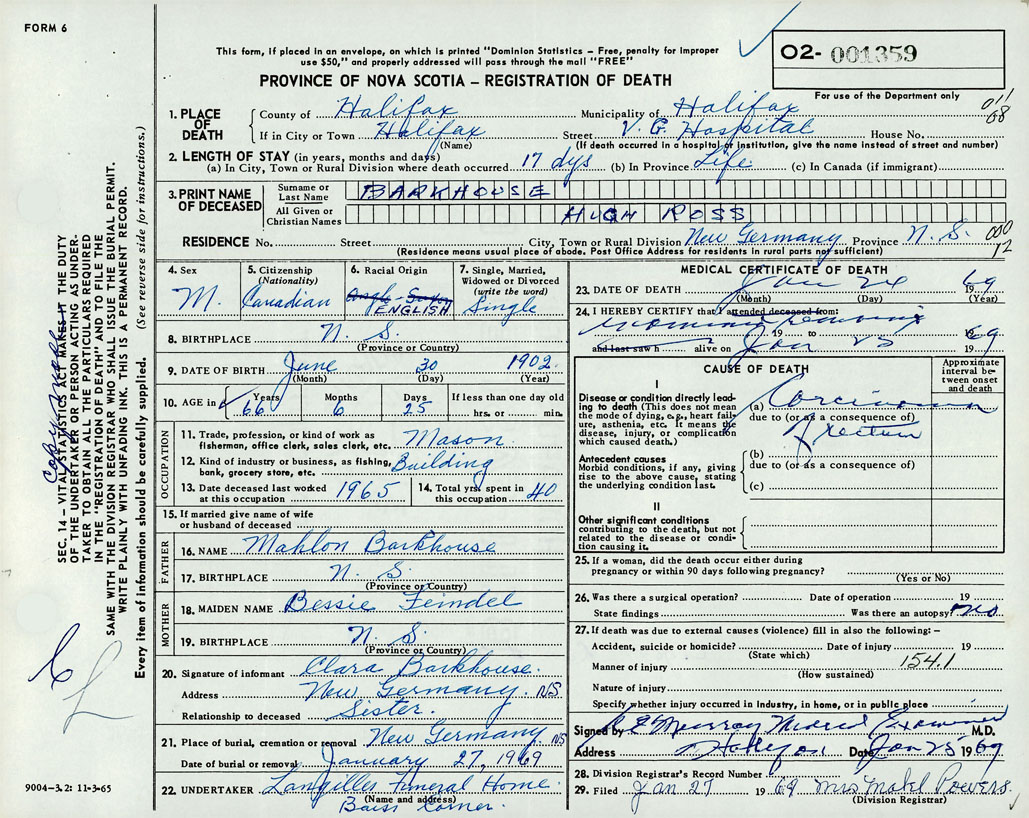 FORM 6
This form, if placed in an envelope, on which is printed "Dominion Statistics – Free, penalty for improper
use $50," and properly addressed will pass through the mail "FREE"
02- 001359
For use of the Department only
PROVINCE OF NOVA SCOTIA – REGISTRATION OF DEATH
011
08
1. PLACE OF DEATH
County of Halifax Municipality of Halifax
If in City or Town Halifax Street V. G. Hospital House No.
(Name) (If death occurred in a hospital or institution, give the name instead of street and number)
2. LENGTH OF STAY (in years, months and days)
(a) In City, Town or Rural Division where death occurred 17 dys (b) In Province Life (c) In Canada (if immigrant)
3. PRINT NAME OF DECEASED
Surname or Last Name BARKHOUSE
All Given or Christian Names HUGH ROSS
RESIDENCE No. Street City, Town or Rural Division New Germany Province N. S. 000
(Residence means usual place of abode. Post Office Address for residents in rural parts not sufficient) 12
4. Sex M.
5. Citizenship (Nationality) Canadian
6. Racial Origin Anglo-Saxon ENGLISH
7. Single, Married, Widowed or Divorced (write the word) Single
8. BIRTHPLACE N. S.
(Province or Country)
9. DATE OF BIRTH June 30 1902
(Month) (Day) (Year)
10. AGE in Years 66 Months 6 Days 25 If less than one day old
hrs. or min.
OCCUPATION
11. Trade, profession, or kind of work as fisherman, office clerk, sales clerk, etc. Mason
12. Kind of industry or business, as fishing, bank, grocery store, etc. Building
13. Date deceased last worked at this occupation 1965
14. Total yrs. spent in this occupation 40
15. If married give name of wife or husband of deceased
FATHER
16. NAME Mahlon Barkhouse
17. BIRTHPLACE N. S.
(Province or Country)
MOTHER
18. MAIDEN NAME Bessie Feindel
19. BIRTHPLACE N. S.
(Province or Country)
20. Signature of informant Clara Barkhouse.
Address New Germany. NS
Relationship to deceased Sister.
21. Place of burial, cremation or removal New Germany NS
Date of burial or removal January 27, 1969
22. UNDERTAKER Langilles Funeral Home.
(Name and address)
Corner.
MEDICAL CERTIFICATE OF DEATH
23. DATE OF DEATH Jan 24 1969
(Month) (Day) (Year)
24. I HEREBY CERTIFY that I attended deceased from:
19 to 1969
and last saw h alive on Jan 25 1969
CAUSE OF DEATH
Approximate interval between onset and death
I
Disease or condition directly leading to death (This does not mean the mode of dying, e.g., heart failure, asthenia, etc. It means the disease, injury, or complication which caused death.)
(a) Carcinoma
due to (or as a consequence of)
of rectum
Antecedent causes
Morbid conditions, if any, giving rise to the above cause, stating the underlying condition last.
(b)
due to (or as a consequence of)
(c)
II
Other significant conditions contributing to the death, but not related to the disease or condition causing it.
25. If a woman, did the death occur either during pregnancy or within 90 days following pregnancy?
(Yes or No)
26. Was there a surgical operation? Date of operation 19
State findings Was there an autopsy? no
27. If death was due to external causes (violence) fill in also the following: –
Accident, suicide or homicide? Date of injury 19
(State which)
Manner of injury 154.1
(How sustained)
Nature of injury
Specify whether injury occurred in industry, in home, or in public place
Signed by Murray Medical Examiner M.D.
Address Halifax Date Jan 25 1969
28. Division Registrar's Record Number
29. Filed Jan 27 1969 Mrs Mabel Powers.
(Division Registrar)
SEC. 14 – VITAL STATISTICS ACT MAKES IT THE DUTY
OF THE UNDERTAKER OR PERSON ACTING AS UNDERTAKER TO OBTAIN ALL THE PARTICULARS REQUIRED
IN THE "REGISTRATION OF DEATH" AND TO FILE THE
SAME WITH THE DIVISION REGISTRAR WHO SHALL ISSUE THE BURIAL PERMIT.
WRITE PLAINLY WITH UNFADING INK. THIS IS A PERMANENT RECORD.
Every item of information should be carefully supplied. (See reverse side for instructions.)
9004-3.2: 11-3-65